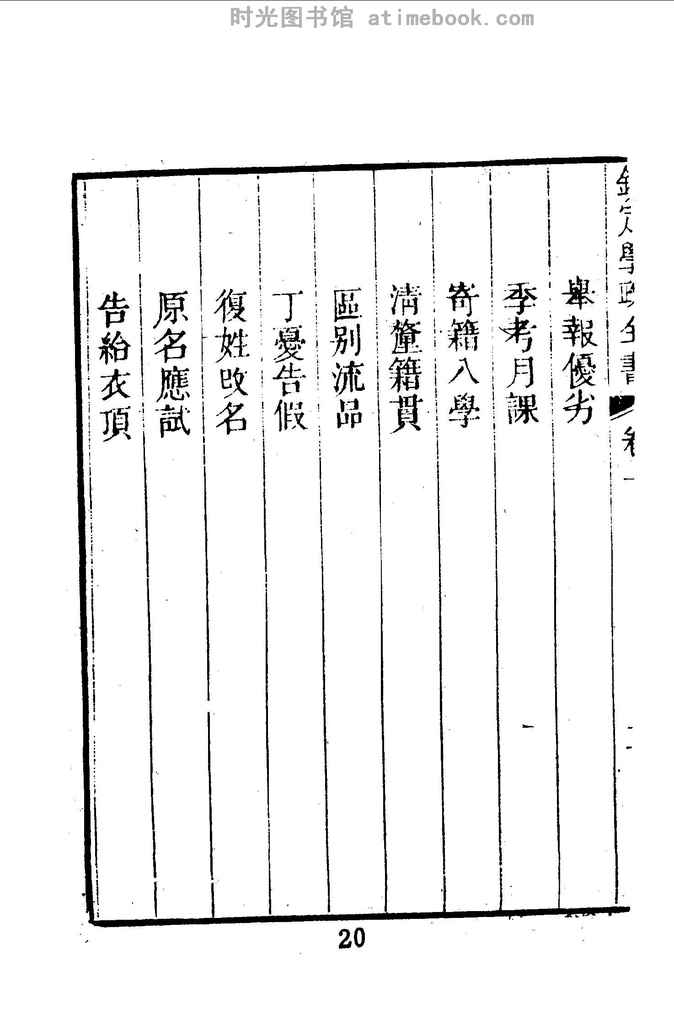 时光图书馆 atimebook.com
欽定學政全書 卷一
舉報優劣
季考月課
寄籍入學
清釐籍貫
區别流品
丁憂告假
復姓改名
原名應試
告給衣頂
20